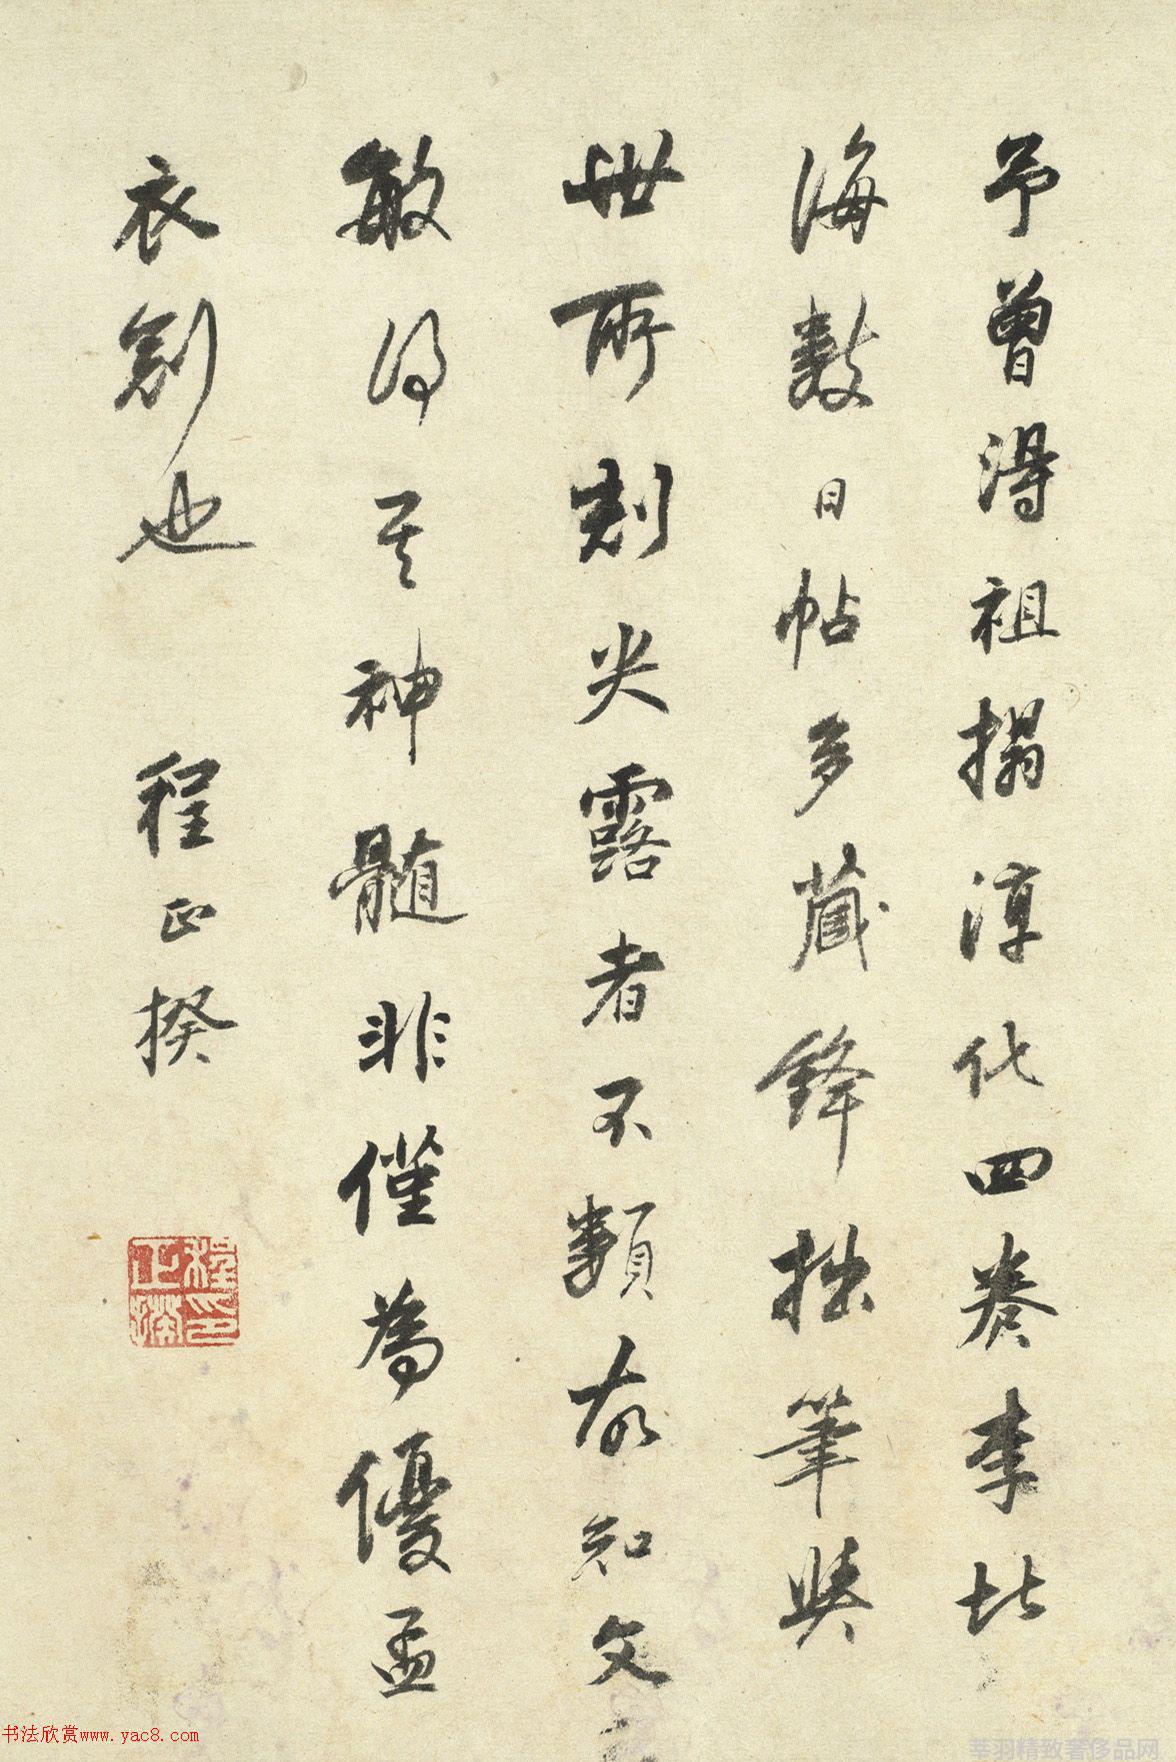 予曾得祖搨淳化四卷李北
海數日帖多藏鋒拙筆與
世所刻尖露者不類故知文
敏得其神髓非僅為優孟
衣劍也
程正揆
程正揆印
书法欣赏www.yac8.com
莘羽精致奢侈品网